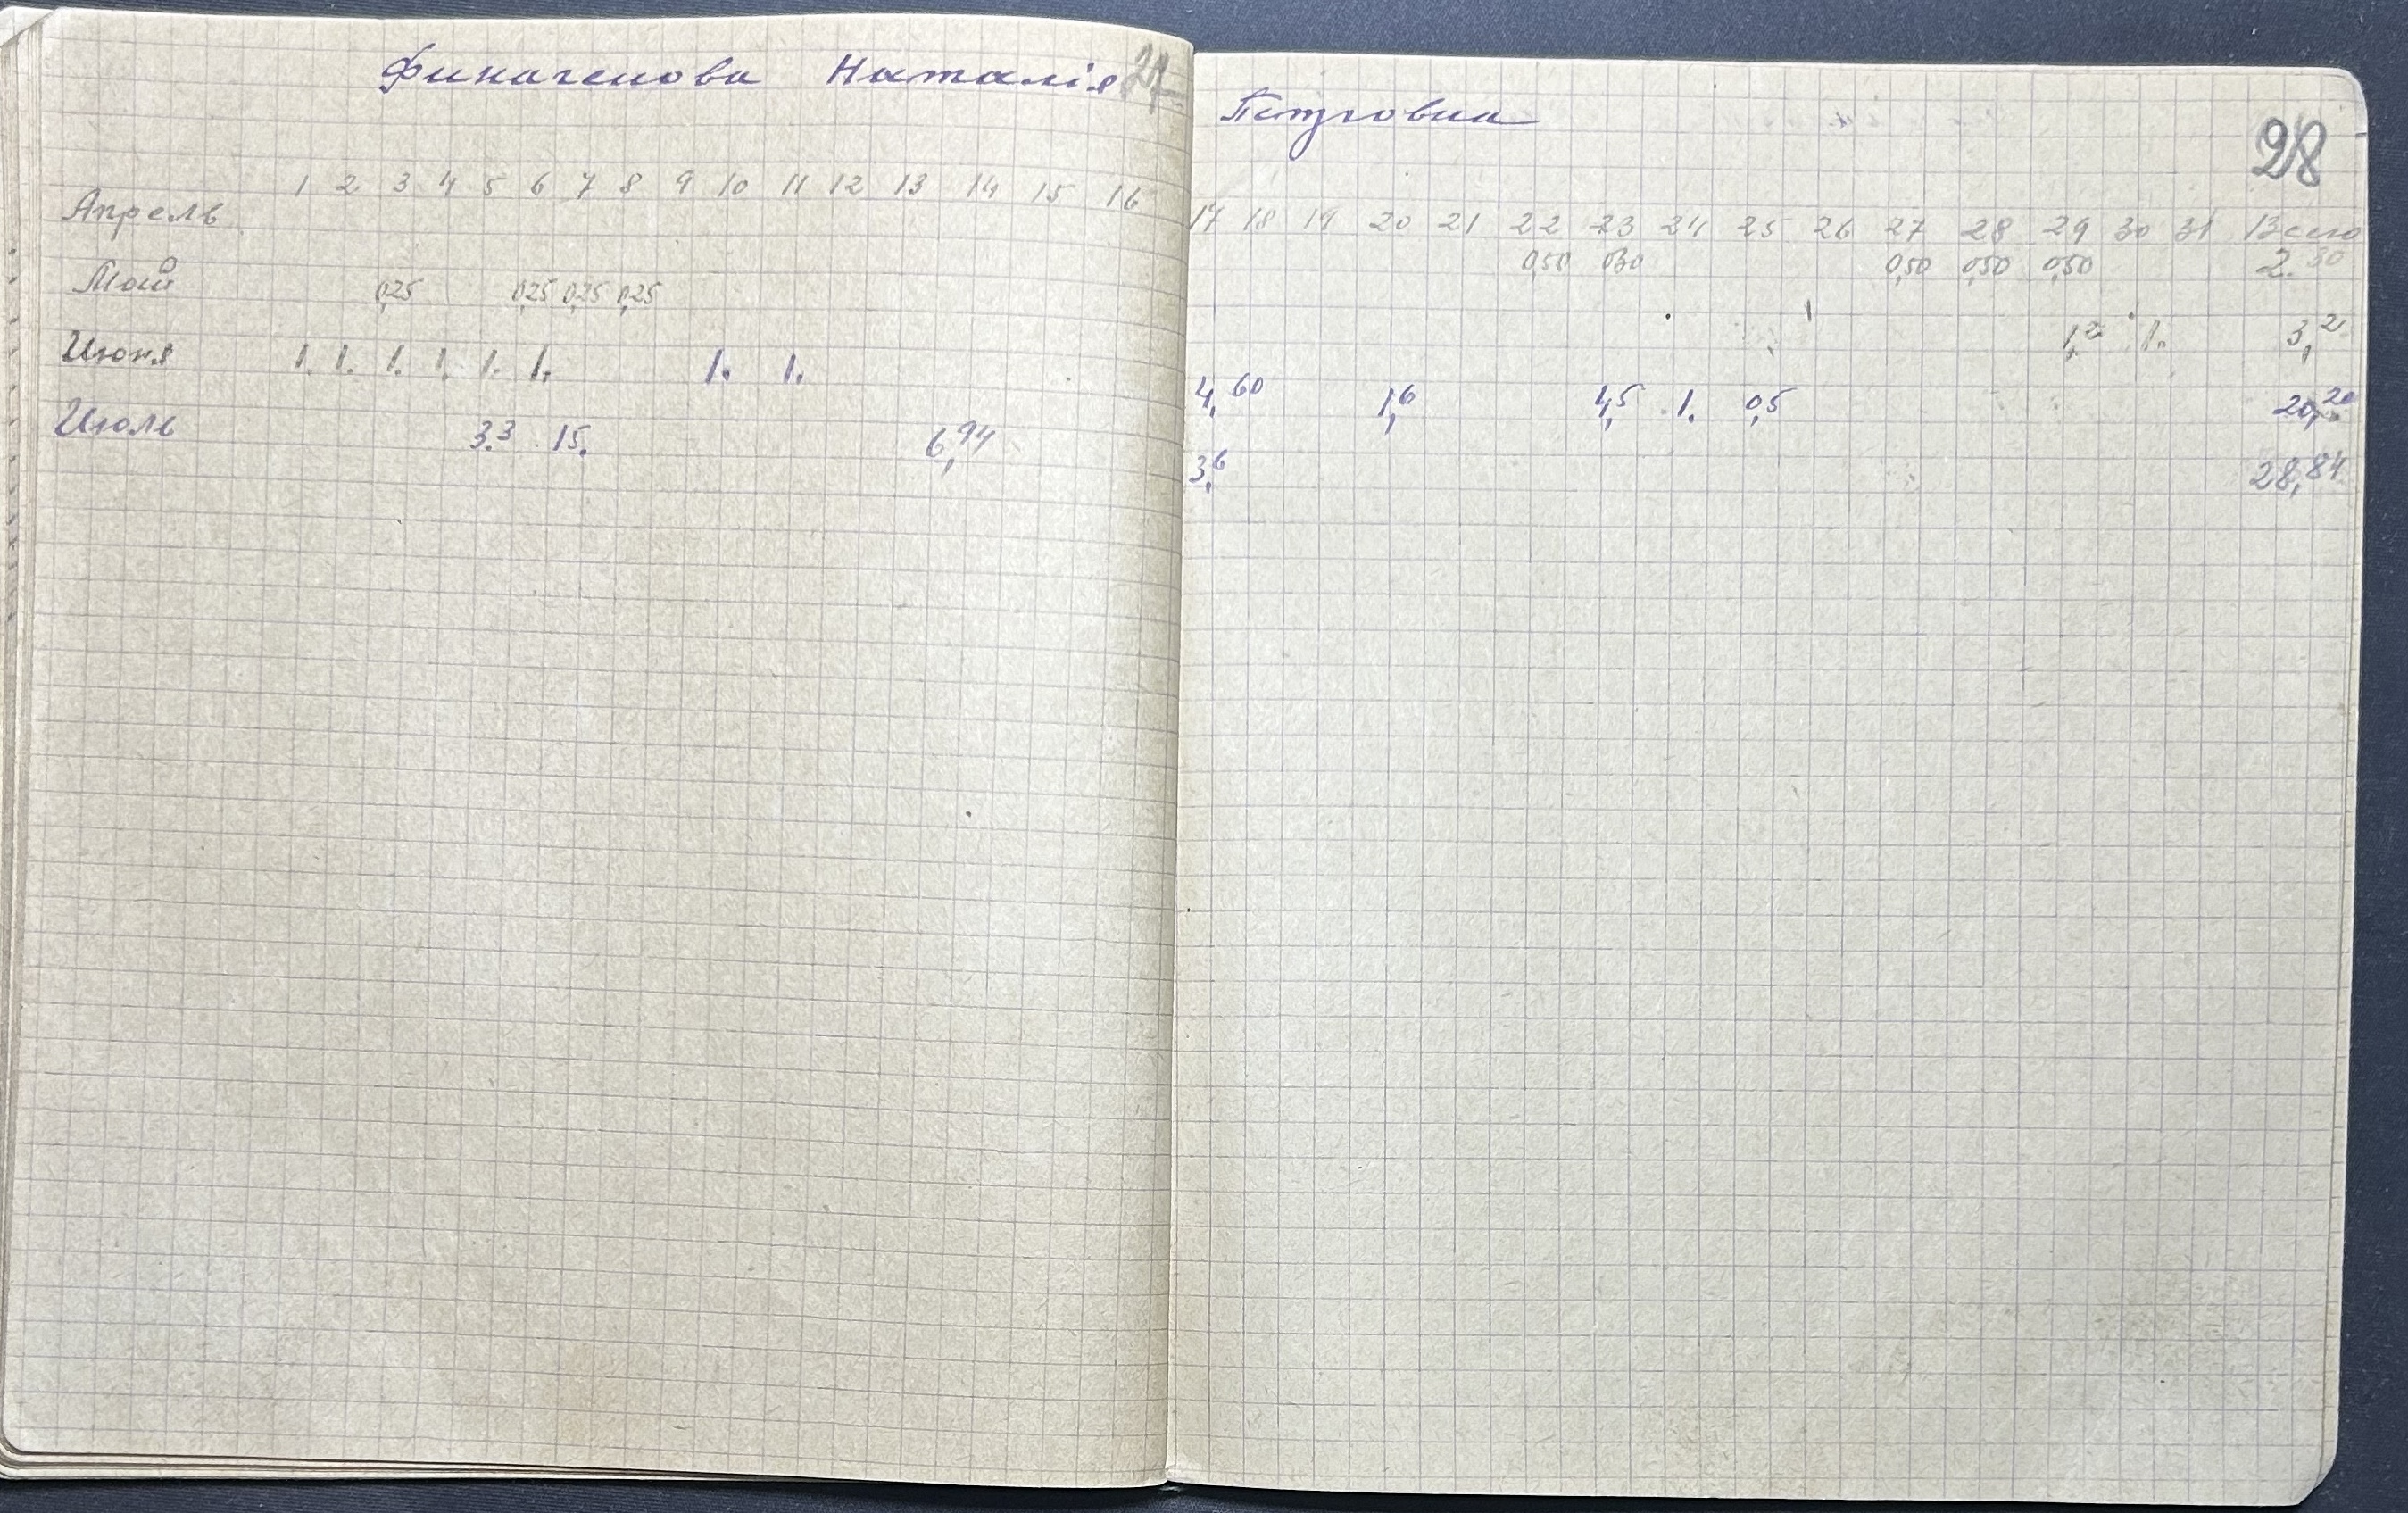 Финагенова Наталія
Петровна
28
1 2 3 4 5 6 7 8 9 10 11 12 13 14 15 16 17 18 19 20 21 22 23 24 25 26 27 28 29 30 31 Всего
Апрель 0,50 0,30 0,50 0,50 0,50 2.30
Май 0,25 0,25 0,25 0,25 1,2 1. 3,2
Июня 1. 1. 1. 1. 1. 1. 1. 1. 4,60 1,6 4,5 1. 0,5 20,20
Июль 3.3 15. 6,94 3,6 28,84